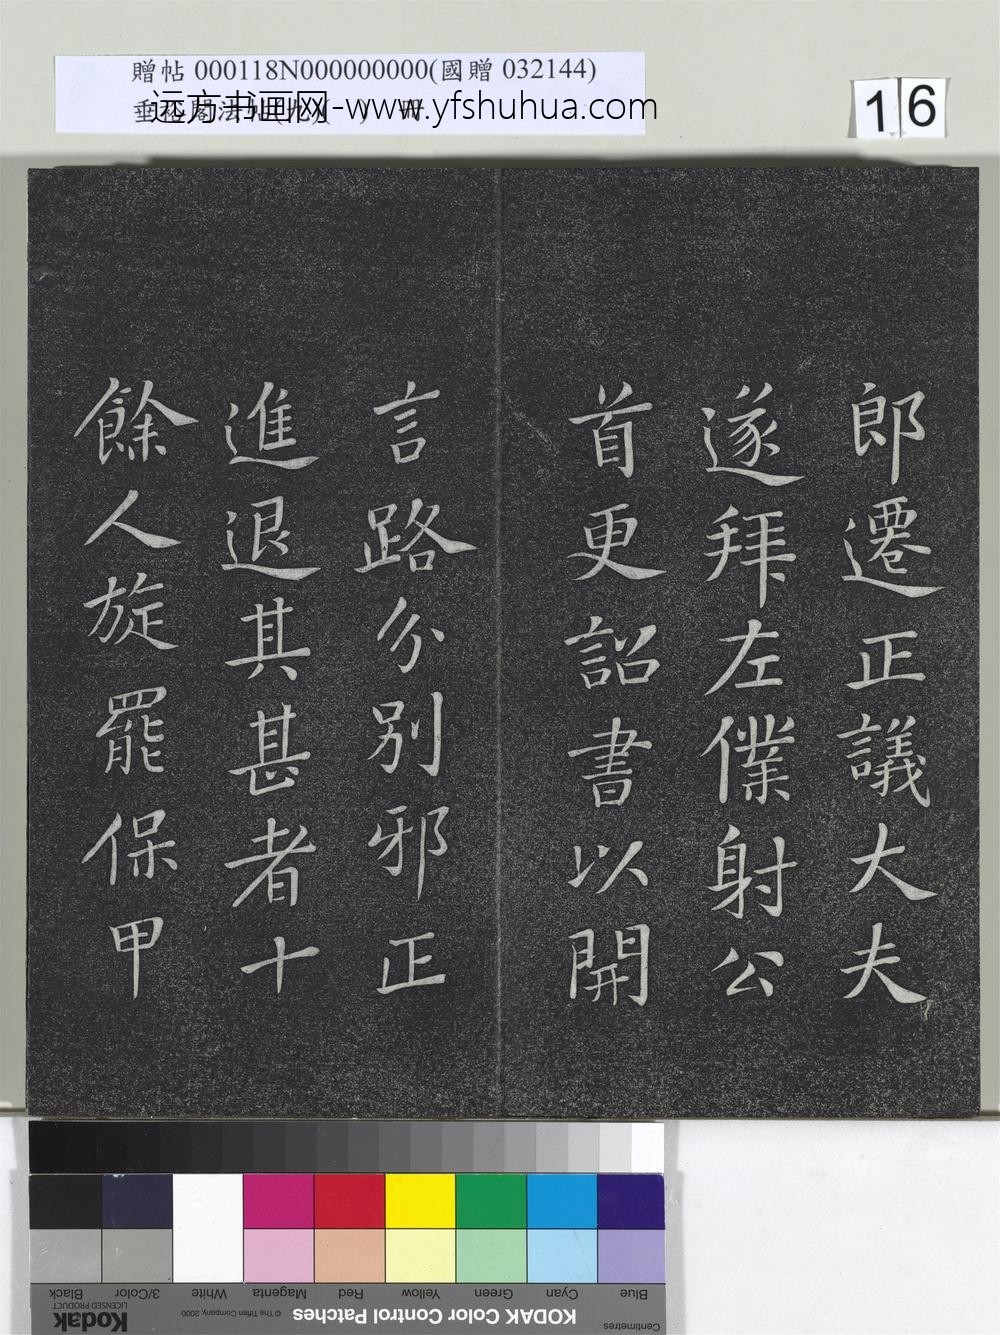 贈帖 000118N000000000(國贈 032144)
远方书画网-www.yfshuhua.com
16
郎遷正議大夫
遂拜左僕射公
首更詔書以開
言路分別邪正
進退其甚者十
餘人旋罷保甲
Blue
Cyan
Green
Yellow
Red
Magenta
White
3/Color
Black
Centimetres
KODAK Color Control Patches
© The Tiffen Company, 2000
Kodak
LICENSED PRODUCT